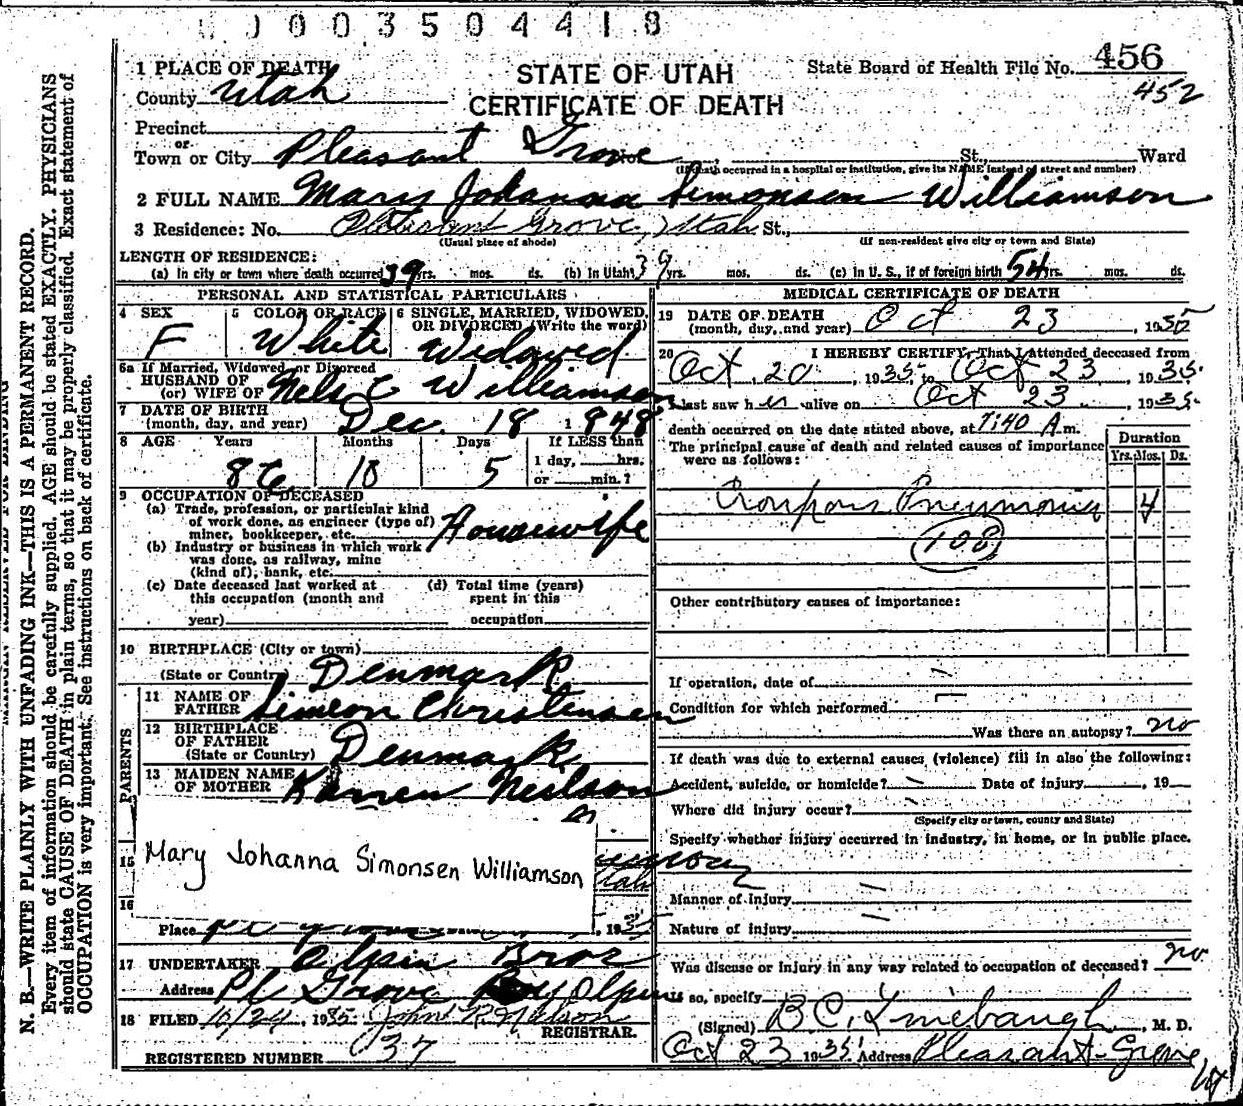 0003504418
1 PLACE OF DEATH
County Utah
STATE OF UTAH
CERTIFICATE OF DEATH
State Board of Health File No. 456
452
Precinct
or
Town or City Pleasant Grove St., Ward
(If death occurred in a hospital or institution, give its NAME instead of street and number)
2 FULL NAME Mary Johanna Simonsen Williamson
3 Residence: No. Pleasant Grove, Utah St.,
(Usual place of abode) (If non-resident give city or town and State)
LENGTH OF RESIDENCE:
(a) In city or town where death occurred 39 yrs. mos. ds. (b) In Utah 39 yrs. mos. ds. (c) in U. S., if of foreign birth 54 yrs. mos. ds.
PERSONAL AND STATISTICAL PARTICULARS
4 SEX F
5 COLOR OR RACE White
6 SINGLE, MARRIED, WIDOWED, OR DIVORCED (Write the word) Widowed
6a If Married, Widowed or Divorced
HUSBAND OF
(or) WIFE OF Nels C Williamson
7 DATE OF BIRTH
(month, day, and year) Dec. 18 1848
8 AGE Years Months Days If LESS than
86 10 5 1 day, hrs.
or min.?
9 OCCUPATION OF DECEASED
(a) Trade, profession, or particular kind
of work done, as engineer (type of)
miner, bookkeeper, etc. Housewife
(b) Industry or business in which work
was done, as railway, mine
(kind of), bank, etc.
(c) Date deceased last worked at
this occupation (month and
year)
(d) Total time (years)
spent in this
occupation
10 BIRTHPLACE (City or town)
(State or Country) Denmark
PARENTS
11 NAME OF
FATHER Simeon Christensen
12 BIRTHPLACE
OF FATHER
(State or Country) Denmark
13 MAIDEN NAME
OF MOTHER Karren Neilson
15
Mary Johanna Simonsen Williamson
Utah
16
Place , 1935
17 UNDERTAKER Olpin Bros
Address Pl Grove Roy Olpin
18 FILED 10/24, 1935 John R. Nelson
REGISTRAR.
REGISTERED NUMBER 37
MEDICAL CERTIFICATE OF DEATH
19 DATE OF DEATH
(month, day, and year) Oct 23, 1935
20 I HEREBY CERTIFY, That I attended deceased from
Oct 20, 1935 to Oct 23 1935
I last saw her alive on Oct 23, 1935.
death occurred on the date stated above, at 7:40 A.m.
The principal cause of death and related causes of importance
were as follows:
Duration
Yrs. Mos. Ds.
Croupous Pneumonia 4
108
Other contributory causes of importance:
If operation, date of
Condition for which performed
Was there an autopsy? no
If death was due to external causes (violence) fill in also the following:
Accident, suicide, or homicide? Date of injury , 19
Where did injury occur?
(Specify city or town, county and State)
Specify whether injury occurred in industry, in home, or in public place.
Manner of injury
Nature of injury
Was disease or injury in any way related to occupation of deceased? no
If so, specify
(Signed) B C Linebaugh, M. D.
Oct 23 1935 Address Pleasant Grove Ut
N. B.—WRITE PLAINLY WITH UNFADING INK—THIS IS A PERMANENT RECORD.
Every item of information should be carefully supplied. AGE should be stated EXACTLY. PHYSICIANS
should state CAUSE OF DEATH in plain terms, so that it may be properly classified. Exact statement of
OCCUPATION is very important. See instructions on back of certificate.